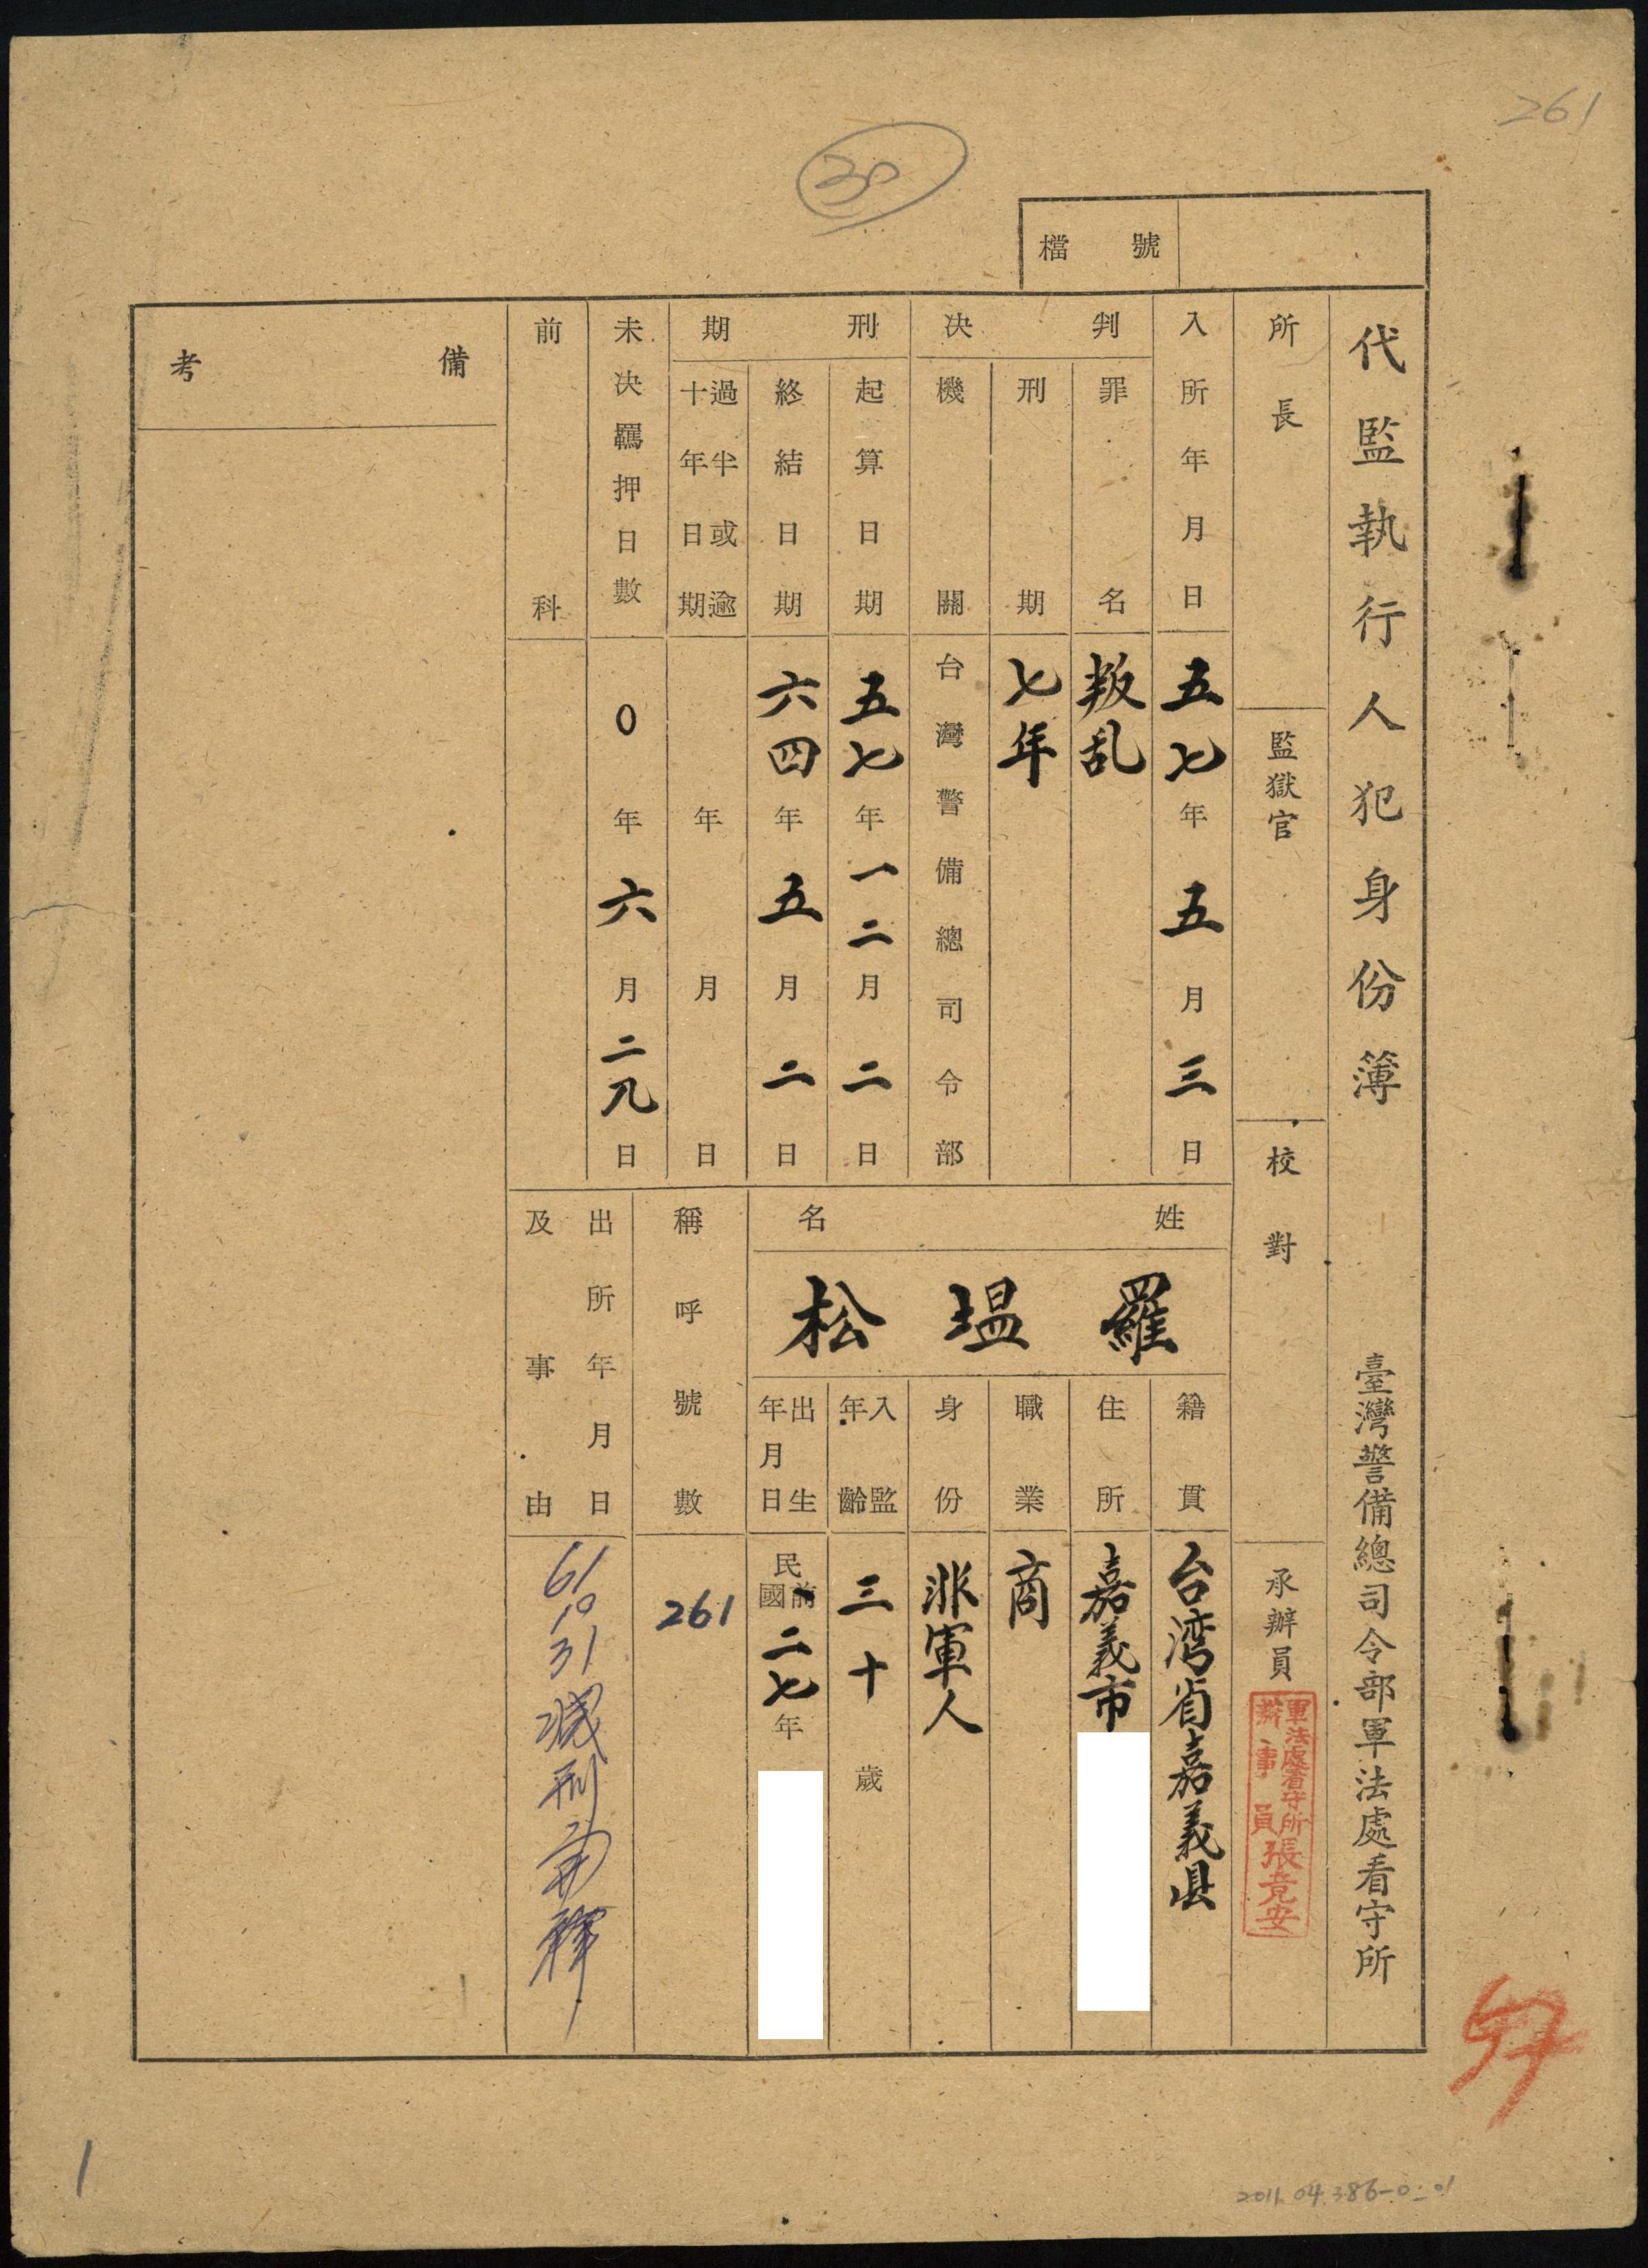 261
30
檔號
代監執行人犯身份簿
臺灣警備總司令部軍法處看守所
所長
監獄官
校對
承辦員
軍法處看守所
辦事員張竟安
入所年月日
五七年五月三日
判決
罪名
叛乱
刑期
七年
機關
台灣警備總司令部
刑期
起算日期
五七年一二月二日
終結日期
六四年五月二日
過半或逾
十年日期
年月日
未決羈押日數
0年六月二九日
前科
備考
姓名
羅塭松
籍貫
台湾省嘉義县
住所
嘉義市
職業
商
身份
非軍人
入監
年齡
三十歲
出生
年月日
民國前二七年
稱呼號數
261
出所年月日
及事由
61 10 31 減刑開釋
1
2011.04.386-0-01